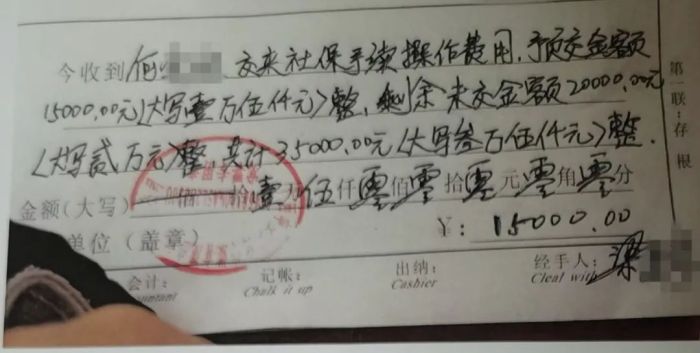 今收到何 交来社保手续操作费用,予预交金额
15000.00元(大写壹万伍仟元)整,剩余未交金额20000.00元
(大写贰万元)整,共计35000.00元(大写叁万伍仟元)整.
金额(大写) 拾壹万伍仟零佰零拾零元零角零分
单位(盖章) ¥: 15000.00
会计: 记帐: 出纳: 经手人: 梁
Chalk it up Cashier Cleal with
第一联:存根